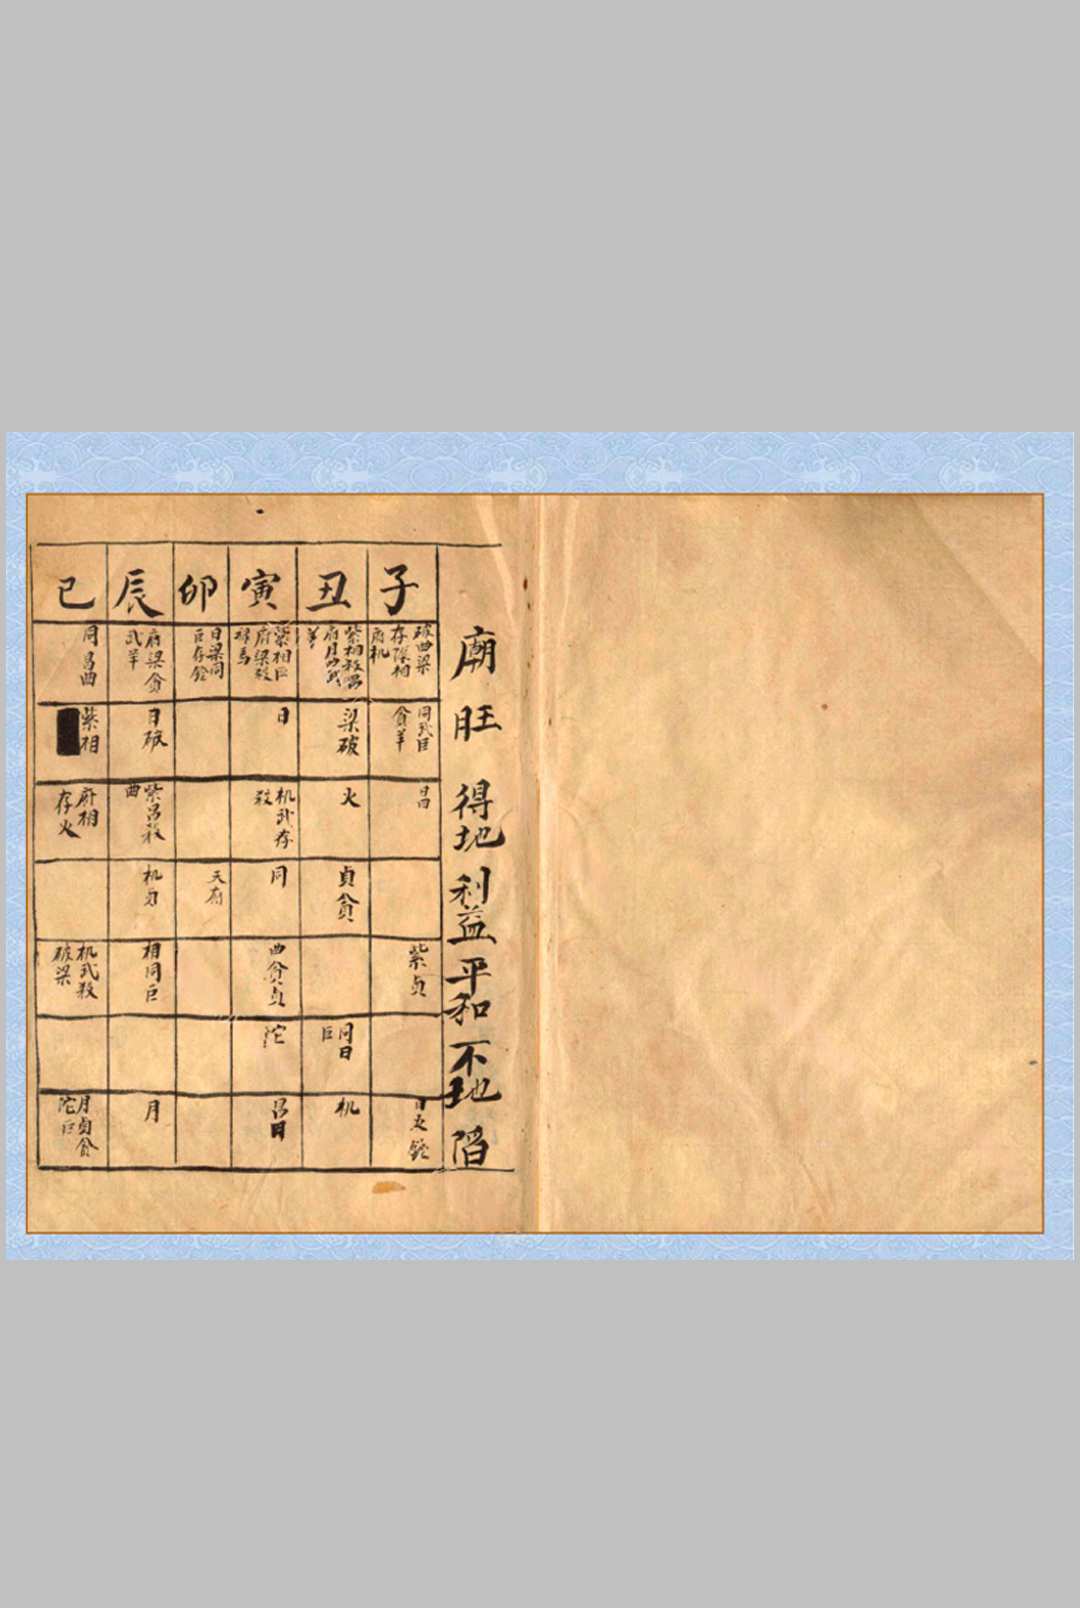 廟
旺
得地
利益
平和
不地
陷
子
破曲梁
存陰相
府机
同武巨
貪羊
昌
紫貞
丑
紫相殺昌
羊
梁破
火
貞貪
同日
巨
机
寅
紫相巨
府梁殺
馬
日
机武存
殺
同
曲貪貞
陀
昌月
卯
日梁同
巨存鈴
天府
辰
府梁貪
武羊
日破
紫昌殺
曲
机貞
相同巨
月
巳
同昌曲
紫相
府相
存火
机武殺
破梁
月貞貪
陀巨